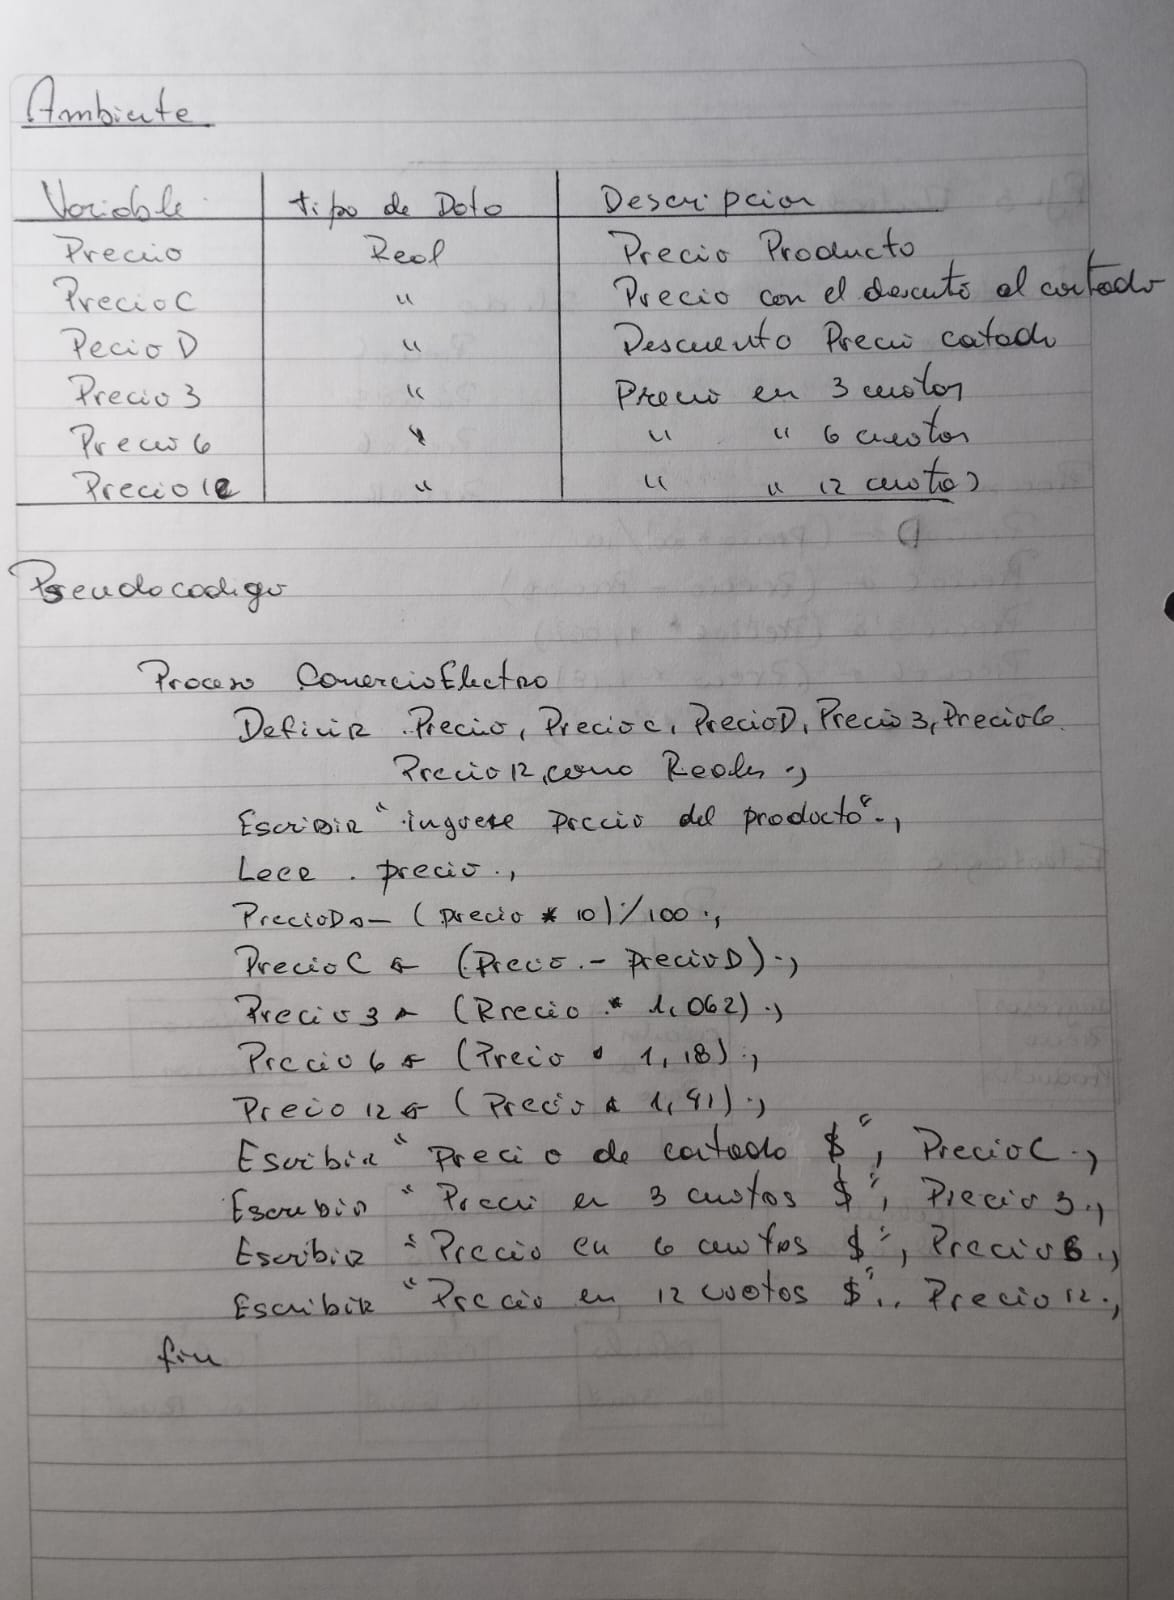 Ambiente
Variable tipo de Dato Descripcion
Precio Real Precio Producto
PrecioC " Precio con el descuto al contado
Pecio D " Descuento Precio catado
Precio 3 " Precio en 3 cuotas
Precio 6 " " " 6 cuotas
Precio 12 " " " 12 cuotas
Pseudocodigo
Proceso ComercioElectro
Definir Precio, Precioc, PrecioD, Precio 3, Precio6
Precio 12, como Reales ;
Escribir "ingrese precio del producto" ;
Leer precio ;
PrecioD ← (precio * 10)/100 ;
Precio C ← (Precio - precioD) ;
Precio 3 ← (Rrecio * 1,062) ;
Precio 6 ← (Precio * 1,18) ;
Precio 12 ← (Precio * 1,41) ;
Escribir "Precio de catado $", PrecioC ;
Escribir "Precio en 3 cuotas $", Precio 3 ;
Escribir "Precio en 6 cuotas $", Precio 6 ;
Escribir "Precio en 12 cuotas $", Precio 12 ;
fin